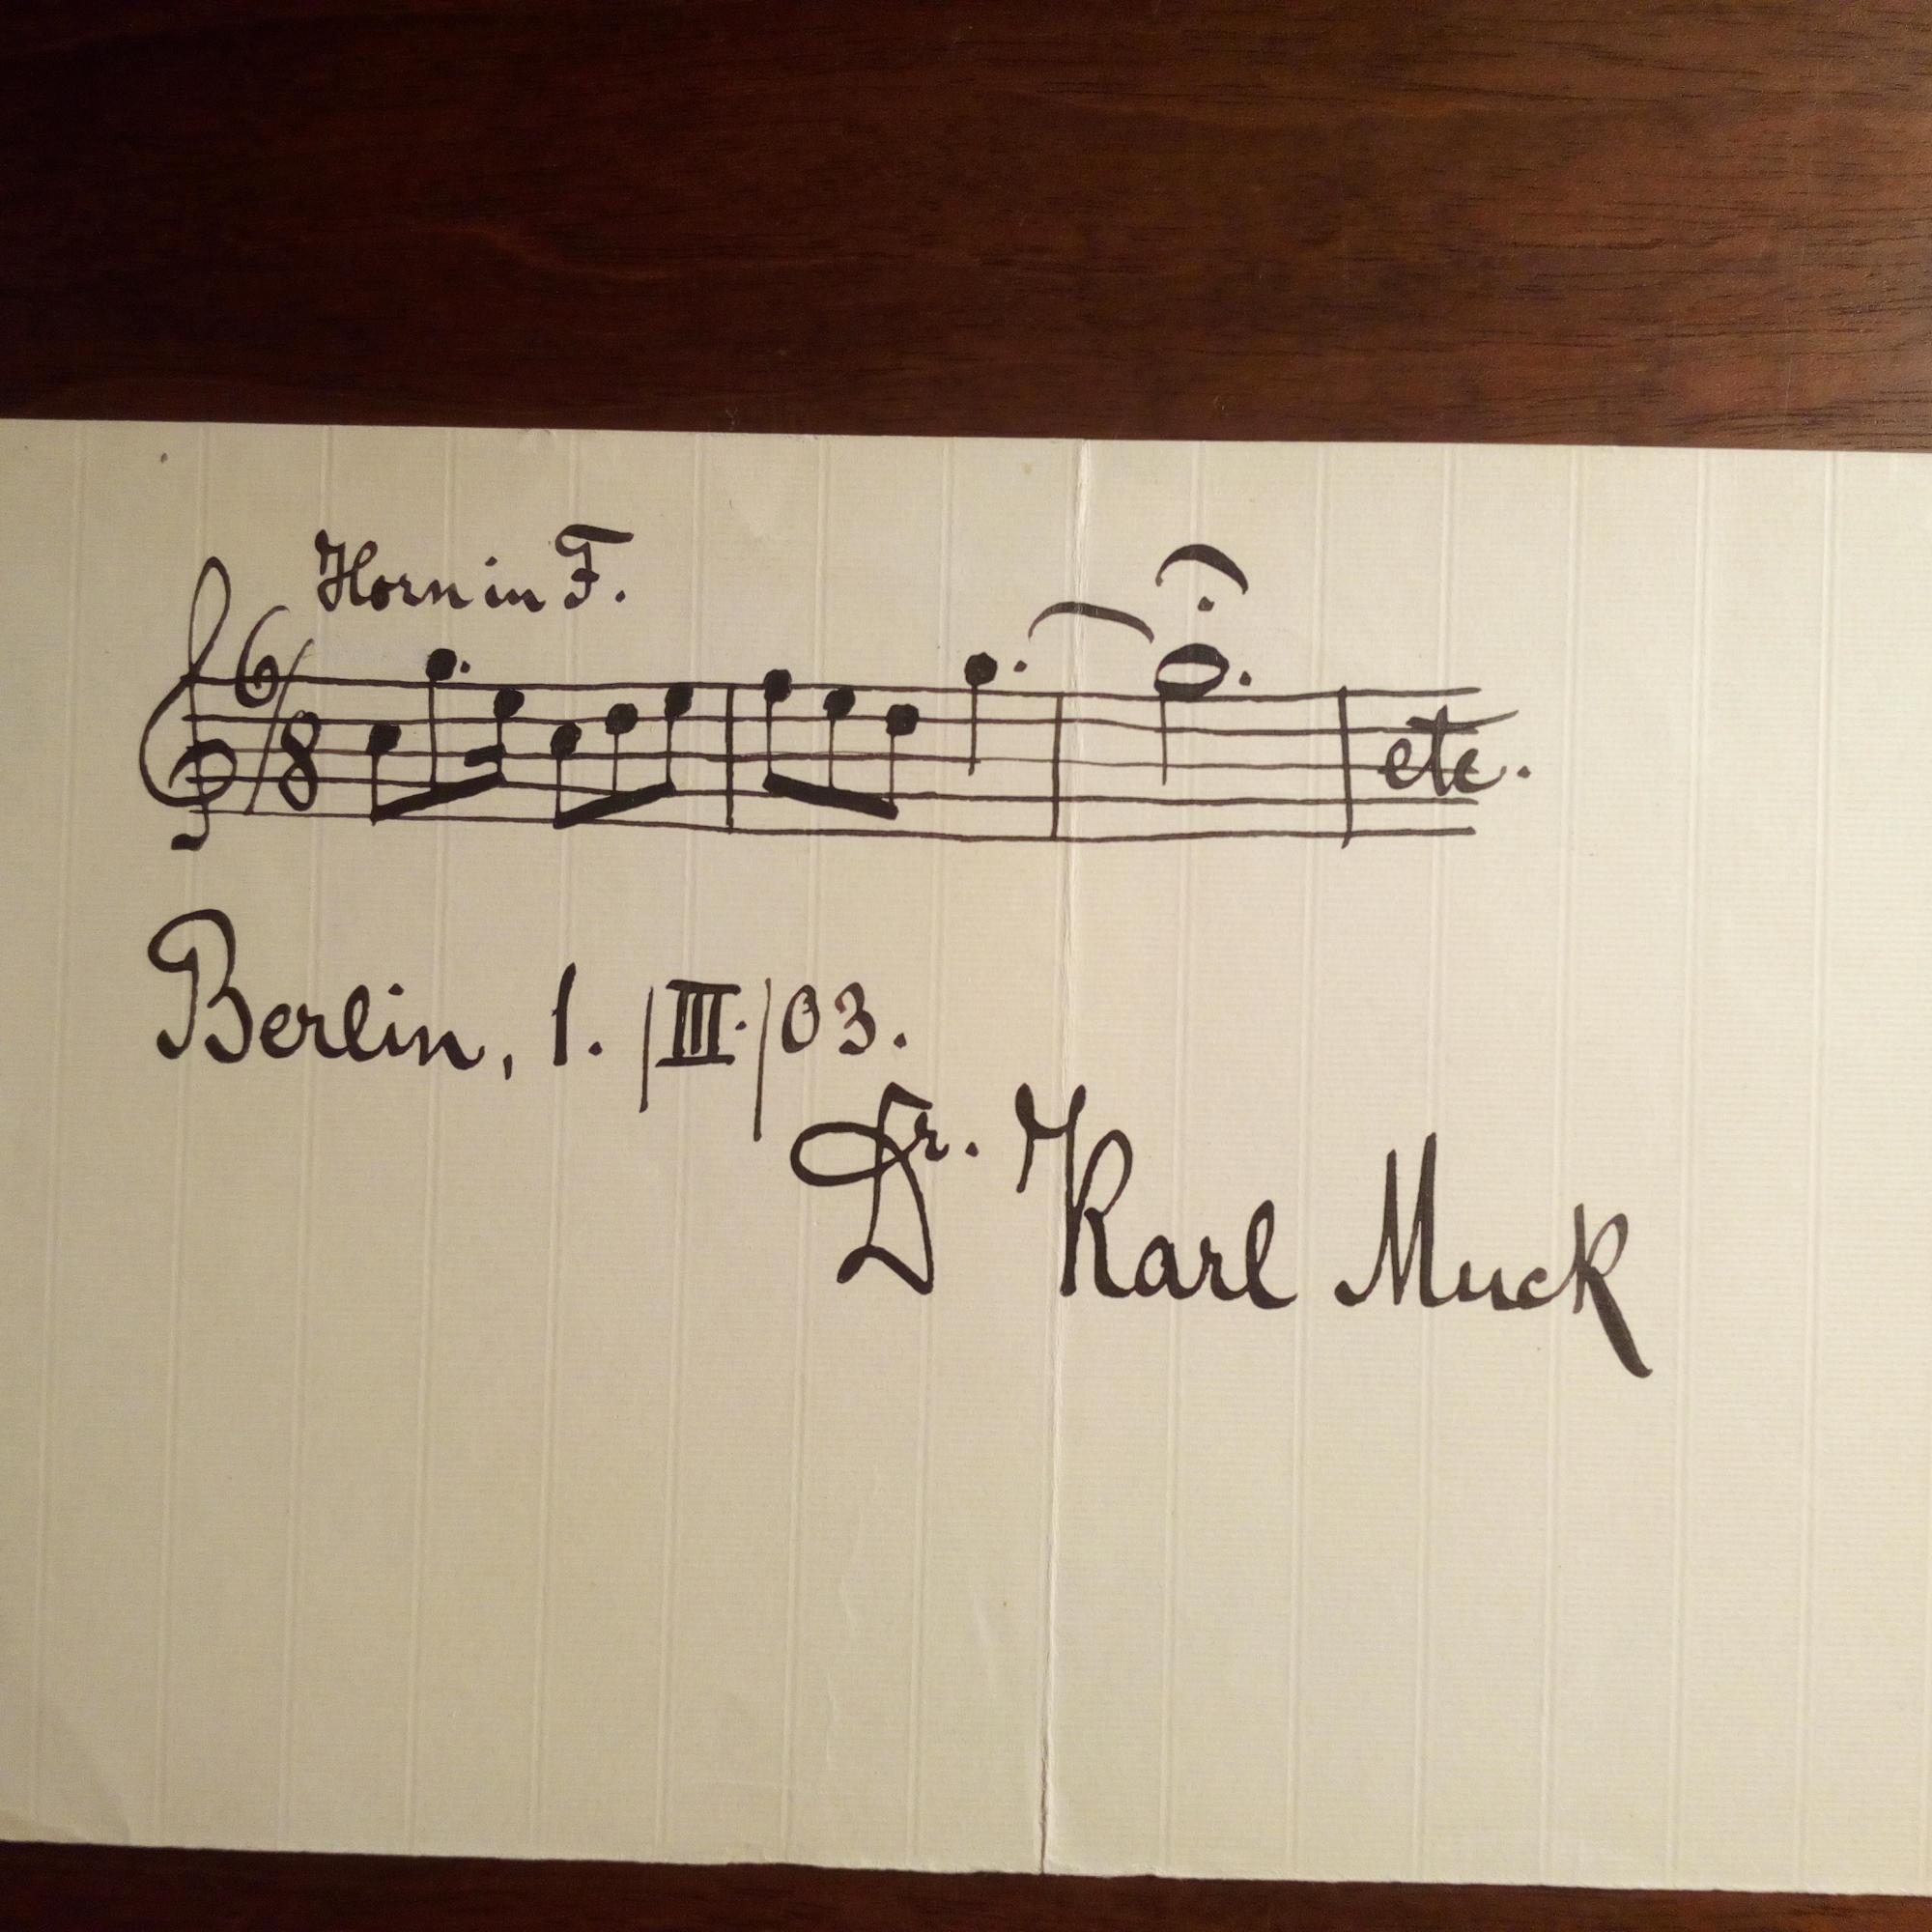 Horn in F.
6/8
etc.
Berlin, 1. /III./03.
Dr. Karl Muck